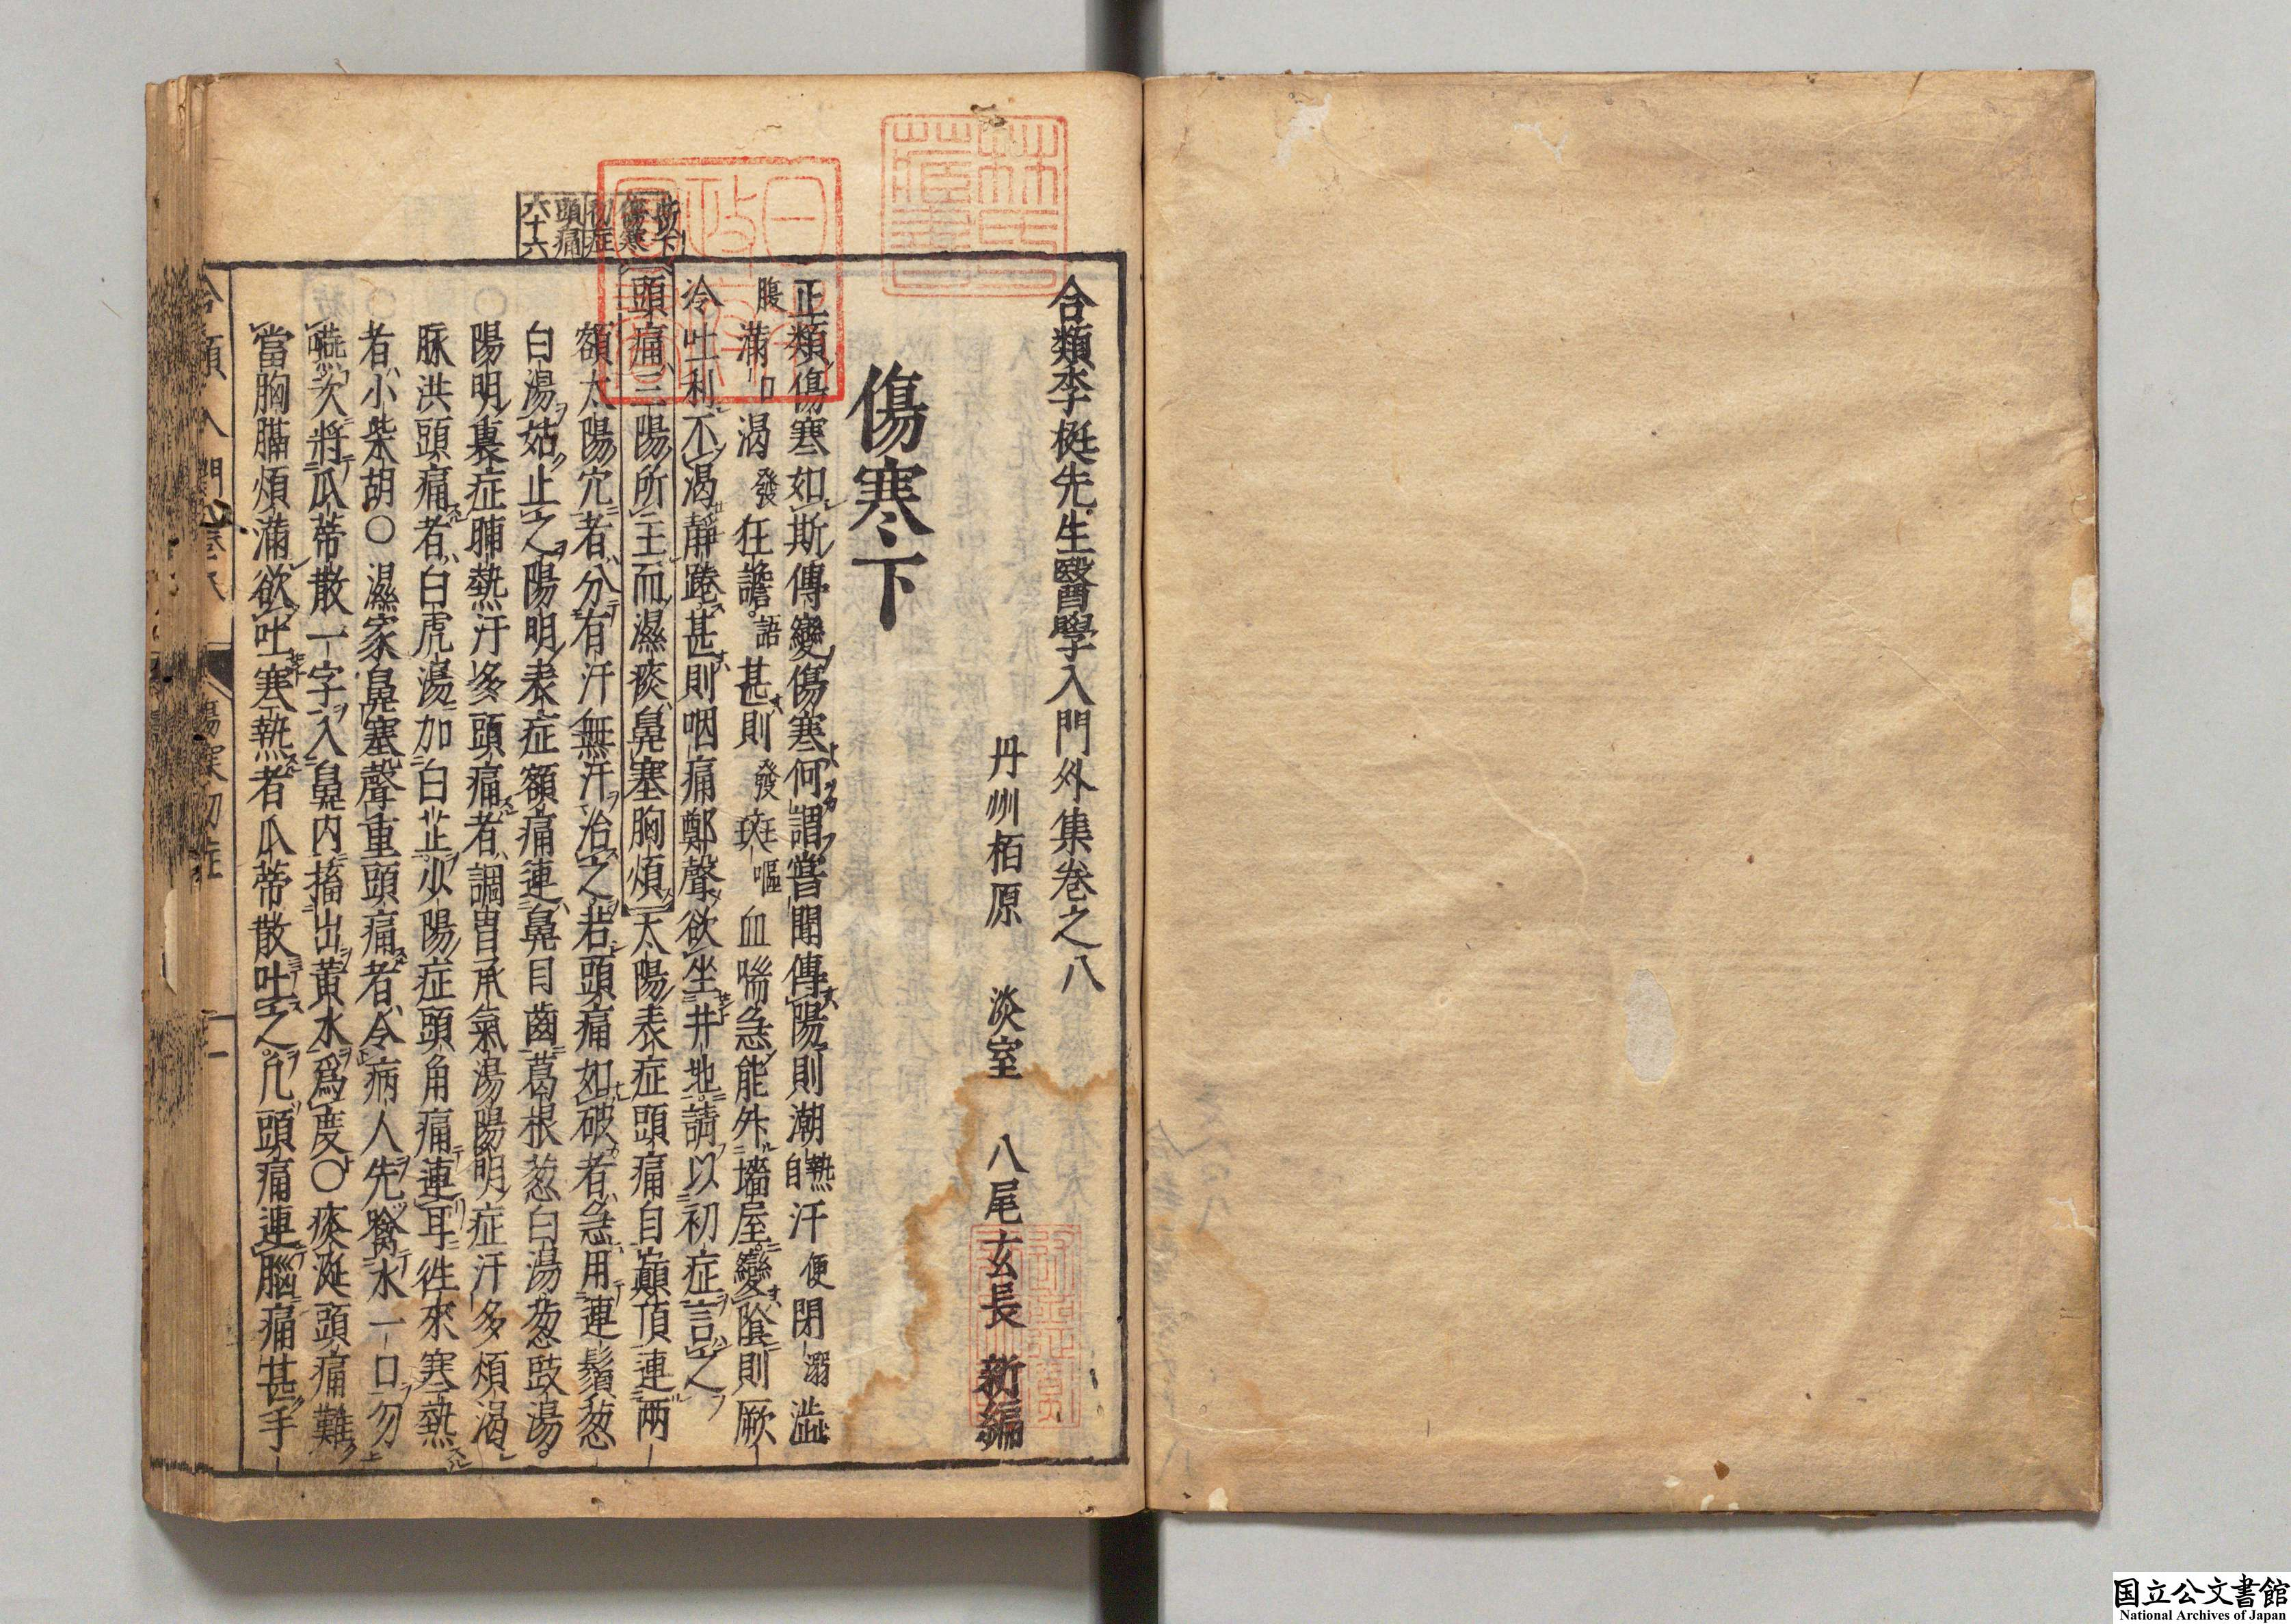 合類李梴先生醫學入門外集卷之八
丹州栢原 淡室 八尾玄長 新編
傷寒下
正類傷寒如斯傳變傷寒何謂嘗聞傳陽則潮熱自汗便閉溺澁
腹滿口渴發狂譫語甚則發斑嘔血喘急能外墻屋變陰則厥
冷吐利不渴靜踡甚則咽痛鄭聲欲坐井地請以初症言之
此下傷寒初症
頭痛六十六
頭痛三陽所主而濕痰鼻塞胸煩太陽表症頭痛自巔頂連两
額太陽穴者分有汗無汗治之若頭痛如破者急用連鬚葱
白湯姑止之陽明表症額痛連鼻目齒葛根葱白湯葱豉湯
陽明裏症脯熱汗多頭痛者調胃承氣湯陽明症汗多煩渴
脉洪頭痛者白虎湯加白芷少陽症頭角痛連耳徃來寒熱
者小柴胡○濕家鼻塞聲重頭痛者令病人先噙水一口勿
嚥次將瓜蒂散一字入鼻内搐出黃水爲度○痰涎頭痛難
當胸膈煩滿欲吐寒熱者瓜蒂散吐之凡頭痛連腦痛甚手
林氏藏書
日本政府圖書
国立公文書館
National Archives of Japan